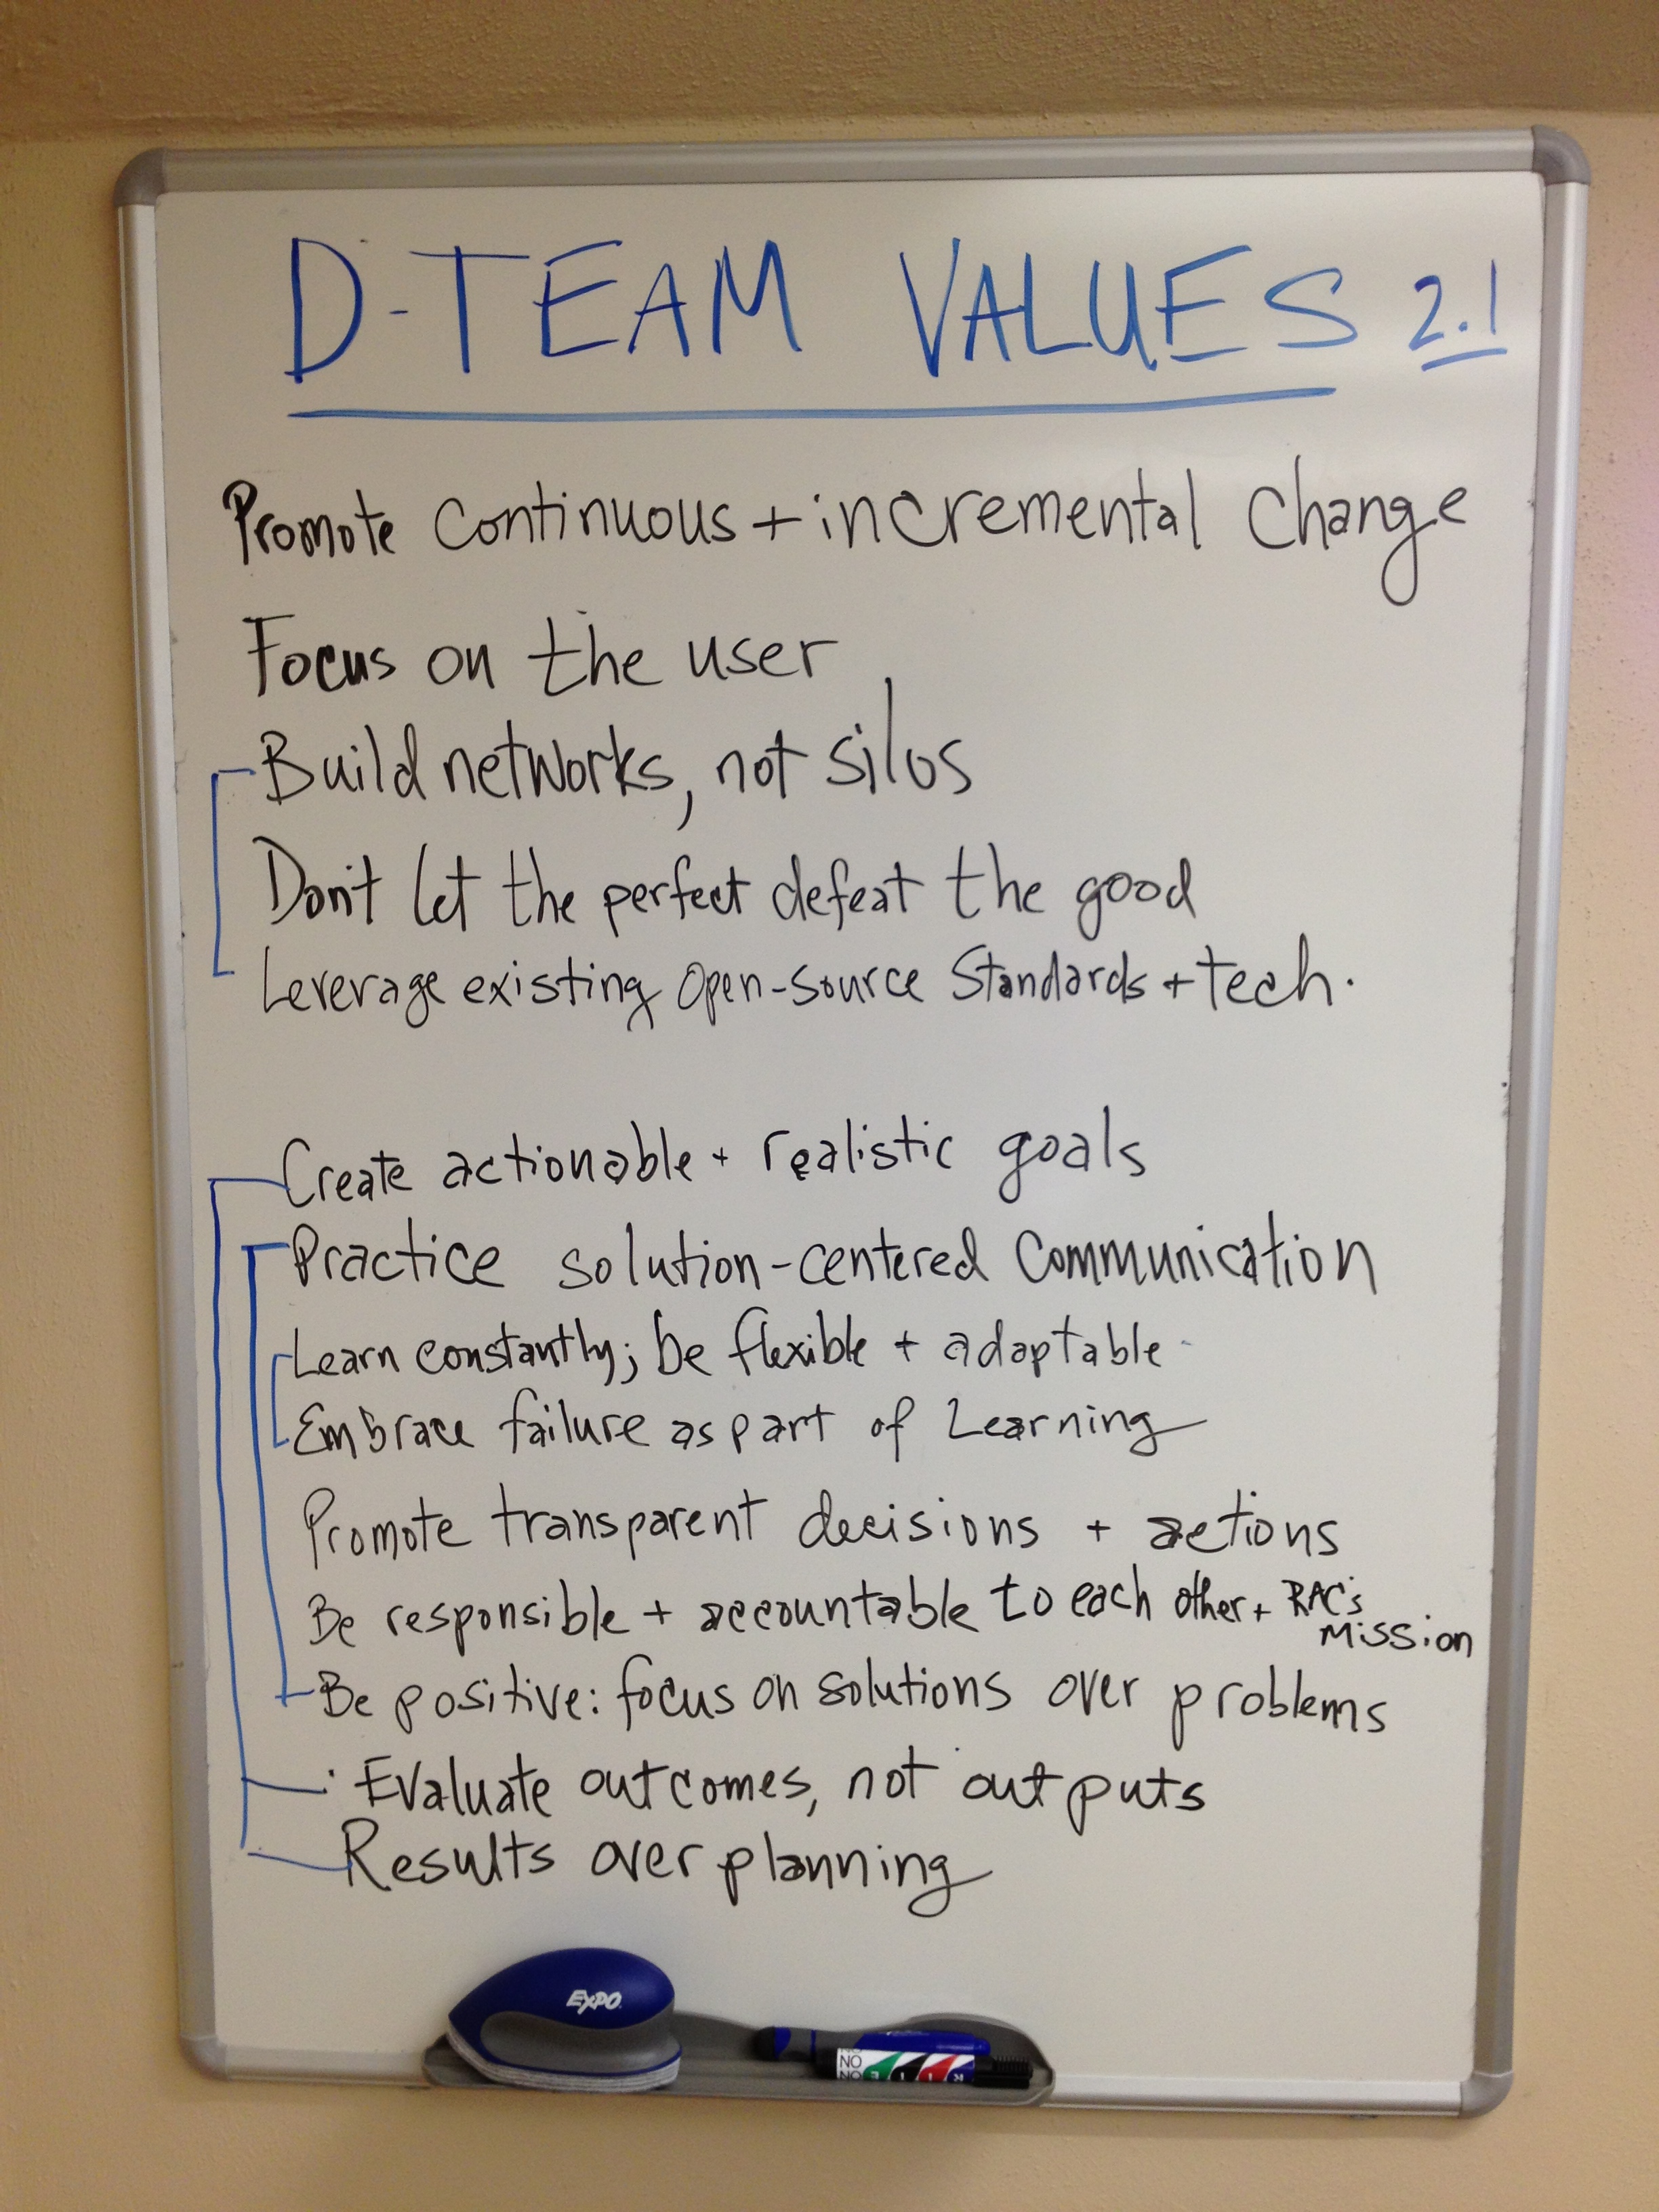 D-TEAM VALUES 2.1
Promote continuous + incremental change
Focus on the user
Build networks, not silos
Don't let the perfect defeat the good
Leverage existing open-source standards + tech.
Create actionable + realistic goals
Practice solution-centered communication
Learn constantly; be flexible + adaptable
Embrace failure as part of Learning
Promote transparent decisions + actions
Be responsible + accountable to each other + RAC's
Mission
Be positive: focus on solutions over problems
· Evaluate outcomes, not outputs
Results over planning
EXPO
NO
NO